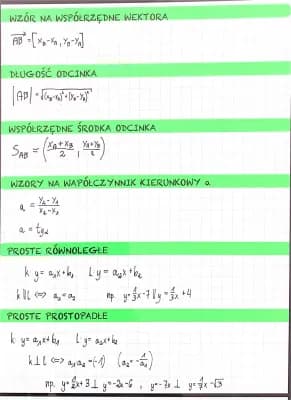 WZÓR NA WSPÓŁRZĘDNE WEKTORA
AB = [x_B - x_A, y_B - y_A]
DŁUGOŚĆ ODCINKA
|AB| = √(x_B - x_A)² + (y_B - y_A)²
WSPÓŁRZĘDNE ŚRODKA ODCINKA
S_AB = (x_A + x_B / 2, y_A + y_B / 2)
WZORY NA WAPÓŁCZYNNIK KIERUNKOWY a
a = y_2 - y_1 / x_2 - x_1
a = tg α
PROSTE RÓWNOLEGŁE
k: y = a_1x + b_1 l: y = a_2x + b_2
k || l <=> a_1 = a_2 np. y = 1/3x - 7 || y = 1/3x + 4
PROSTE PROSTOPADŁE
k: y = a_1x + b_1 l: y = a_2x + b_2
k ⊥ l <=> a_1a_2 = (-1) (a_2 = -1/a_1)
np. y = 1/2x + 3 ⊥ y = -2x - 6, y = -7x ⊥ y = 1/7x - √3